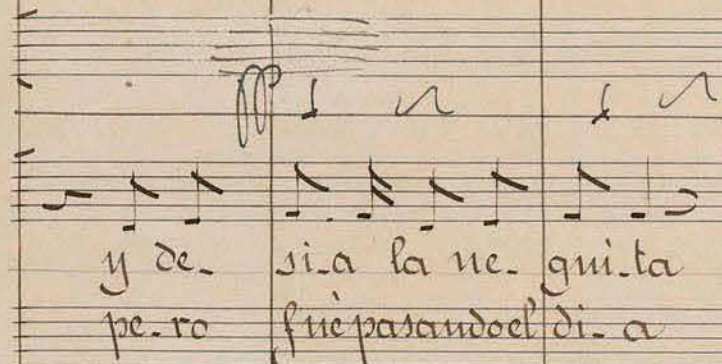 pp
y de- si-a la ne- gui-ta
pe-ro fuè pasando el di-a